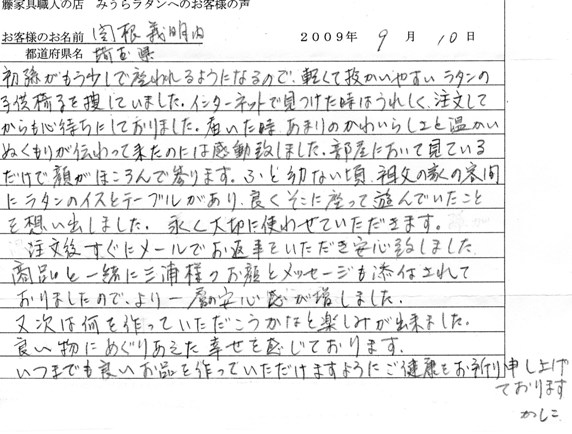 藤家具職人の店 みうらラタンへのお客様の声
お客様のお名前 関根義明内 2009年 9 月 10 日
都道府県名 埼玉県
初孫がもう少しで座われるようになるので、軽くて扱かいやすい ラタンの
子供椅子を捜していました。インターネットで見つけた時はうれしく、注文して
からも心待ちにしておりました。届いた時、あまりのかわいらしさと温かい
ぬくもりが伝わって来たのには感動致しました。部屋において見ている
だけで顔がほころんで参ります。ふと幼ない頃、祖父の家の客間
にラタンのイスとテーブルがあり、良くそこに座って遊んでいたこと
を想い出しました。永く大切に使わせていただきます。
注文後すぐにメールでお返事をいただき安心致しました
商品と一緒に三浦様のお顔とメッセージも添付されて
おりましたので、より一層の安心感が増しました。
又次は何を作っていただこうかなと楽しみが出来ました。
良い物にめぐりあえた幸せを感じております。
いつまでも良いお品を作っていただけますようにご健康をお祈り申し上げ
ております
かしこ